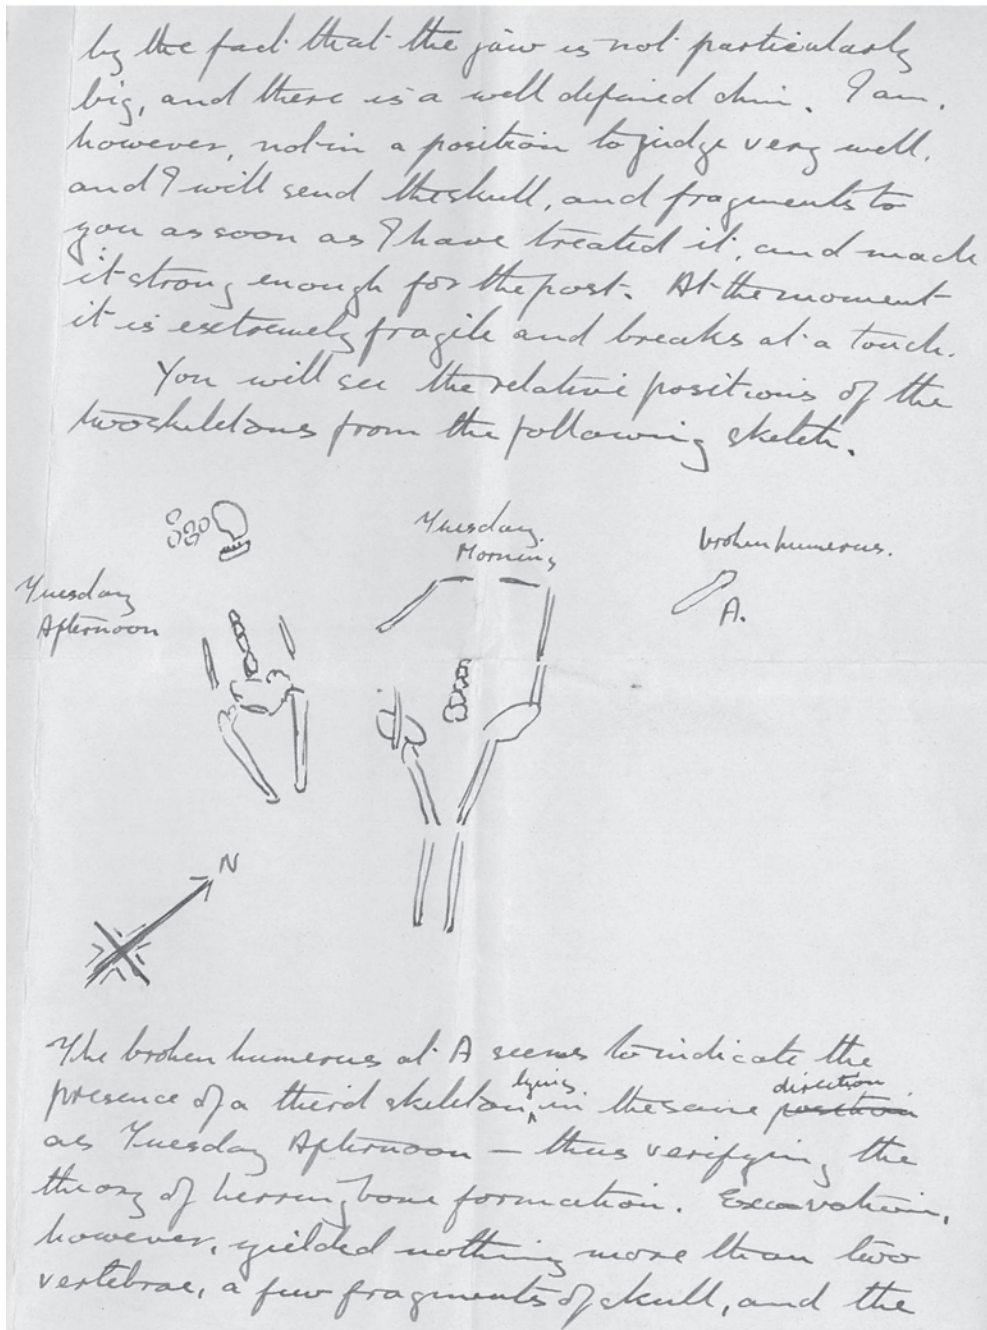 by the fact that the jaw is not particularly
big, and there is a well defined chin. I am,
however, not in a position to judge very well,
and I will send the skull, and fragments to
you as soon as I have treated it, and made
it strong enough for the post. At the moment
it is extremely fragile and breaks at a touch.
You will see the relative positions of the
two skeletons from the following sketch.
Tuesday
Afternoon
Tuesday.
Morning
broken humerus.
A.
N
The broken humerus at A seems to indicate the
presence of a third skeleton, lying in the same position direction
as Tuesday Afternoon — thus verifying the
theory of herring bone formation. Excavation,
however, yielded nothing more than two
vertebrae, a few fragments of skull, and the